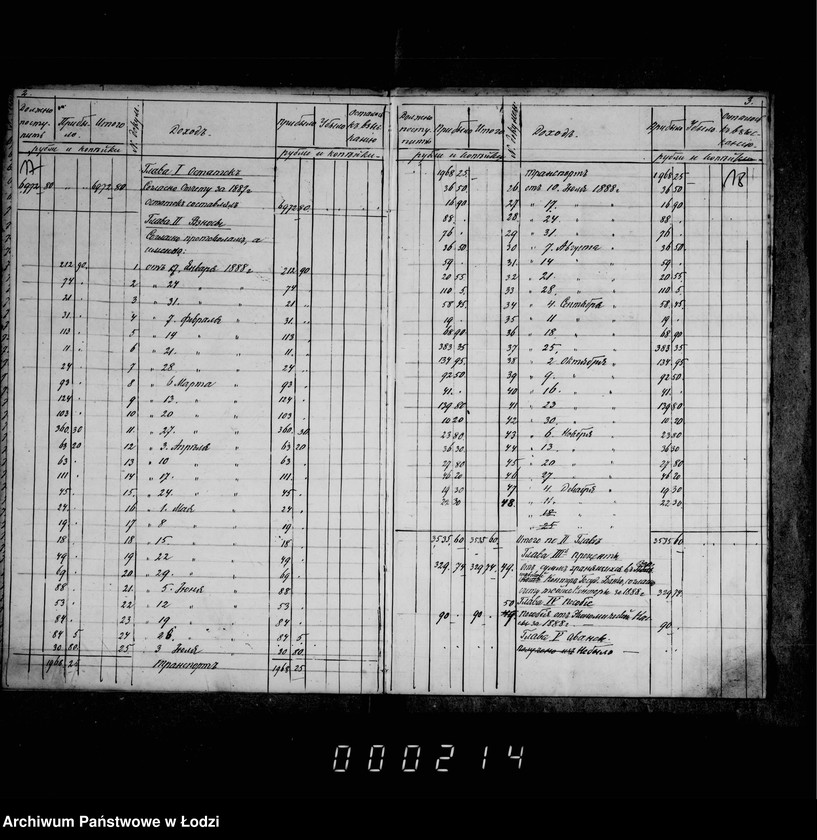 2.
Должно поступить Прибыло. Итого № докум. Доходъ. Прибыло Убыло Остатокъ къ
рубли и копѣйки рубли и копѣйки
17
Глава I Остатокъ
6972 80 6972 80 Согласно отчету за 1887 г.
остатокъ составлялъ 6972 80
Глава II Взносы
Согласно протоколамъ, а
именно:
212 90 1 отъ 17. Января 1888 г 212 90
74 2 " 24 " " 74
21 3 " 31. " " 21
31. 4 " 7. Февраля " 31.
113 5 " 14 " " 113
11. 6 " 21. " " 11.
24 7 " 28 " " 24
93 8 " 6 Марта " 93
124 9 " 13. " " 124
103 10 " 20 " " 103
360 30 11 " 27. " " 360 30
63 20 12 " 3. Апрѣля " 63 20
63 13 " 10 " " 63
111 14 " 17. " " 111
45 15 " 24. " " 45
24 16 " 1. Мая " 24
19 17 " 8 " " 19
18 18 " 15 " " 18
49 19 " 22 " " 49
69 20 " 29. " " 69
88 21 " 5. Іюня " 88
53 22 " 12 " " 53
84 23 " 19 " " 84
84 5 24 " 26. " " 84 5
30 80 25 3 Іюля 30 80
1968 25 Транспортъ 1968 25
3.
Должно поступить Прибыло Итого № докум. Доходъ. Прибыло Убыло Остатокъ къ
рубли и копѣйки рубли и копѣйки
1968 25 Транспортъ 1968 25 18
36 50 26 отъ 10. Іюля 1888 г 36 50
16 90 27 " 17. " " 16 90
88 28 " 24 " " 88
76 29 " 31 " " 76
36 50 30 " 7. Августа " 36 50
59 31 " 14 " " 59
20 55 32 " 21 " " 20 55
110 5 33 " 28. " " 110 5
58 45 34 " 4. Сентября " 58 45
19 35 " 11 " " 19
68 90 36 " 18 " " 68 90
383 35 37 " 25, " " 383 35
134 95 38 " 2. Октября " 134 95
92 50 39 " 9. " " 92 50
41. 40 " 16. " " 41.
139 80 41 " 23 " " 139 80
10 20 42 " 30. " " 10 20
23 80 43 " 6. Ноября " 23 80
36 30 44 " 13. " " 36 30
27 80 45 " 20 " " 27 80
46 20 46 " 27. " " 46 20
19 30 47 " 4. Декабря " 19 30
22 30 48. " 11. " " 22 30
" 18
" 25
3535 60 3535 60 Итого по II Главѣ 3535 60
Глава III проценты
329 74 329 74 49. отъ суммъ хранящихся въ
Конторѣ Госуд. Банка, согласно
счету Конторы за 1888 г 329 74
50 Глава IV пособіе
90 90 пособія отъ
за 1888 г 90
Глава V авансъ
получено не было
000214
Archiwum Państwowe w Łodzi